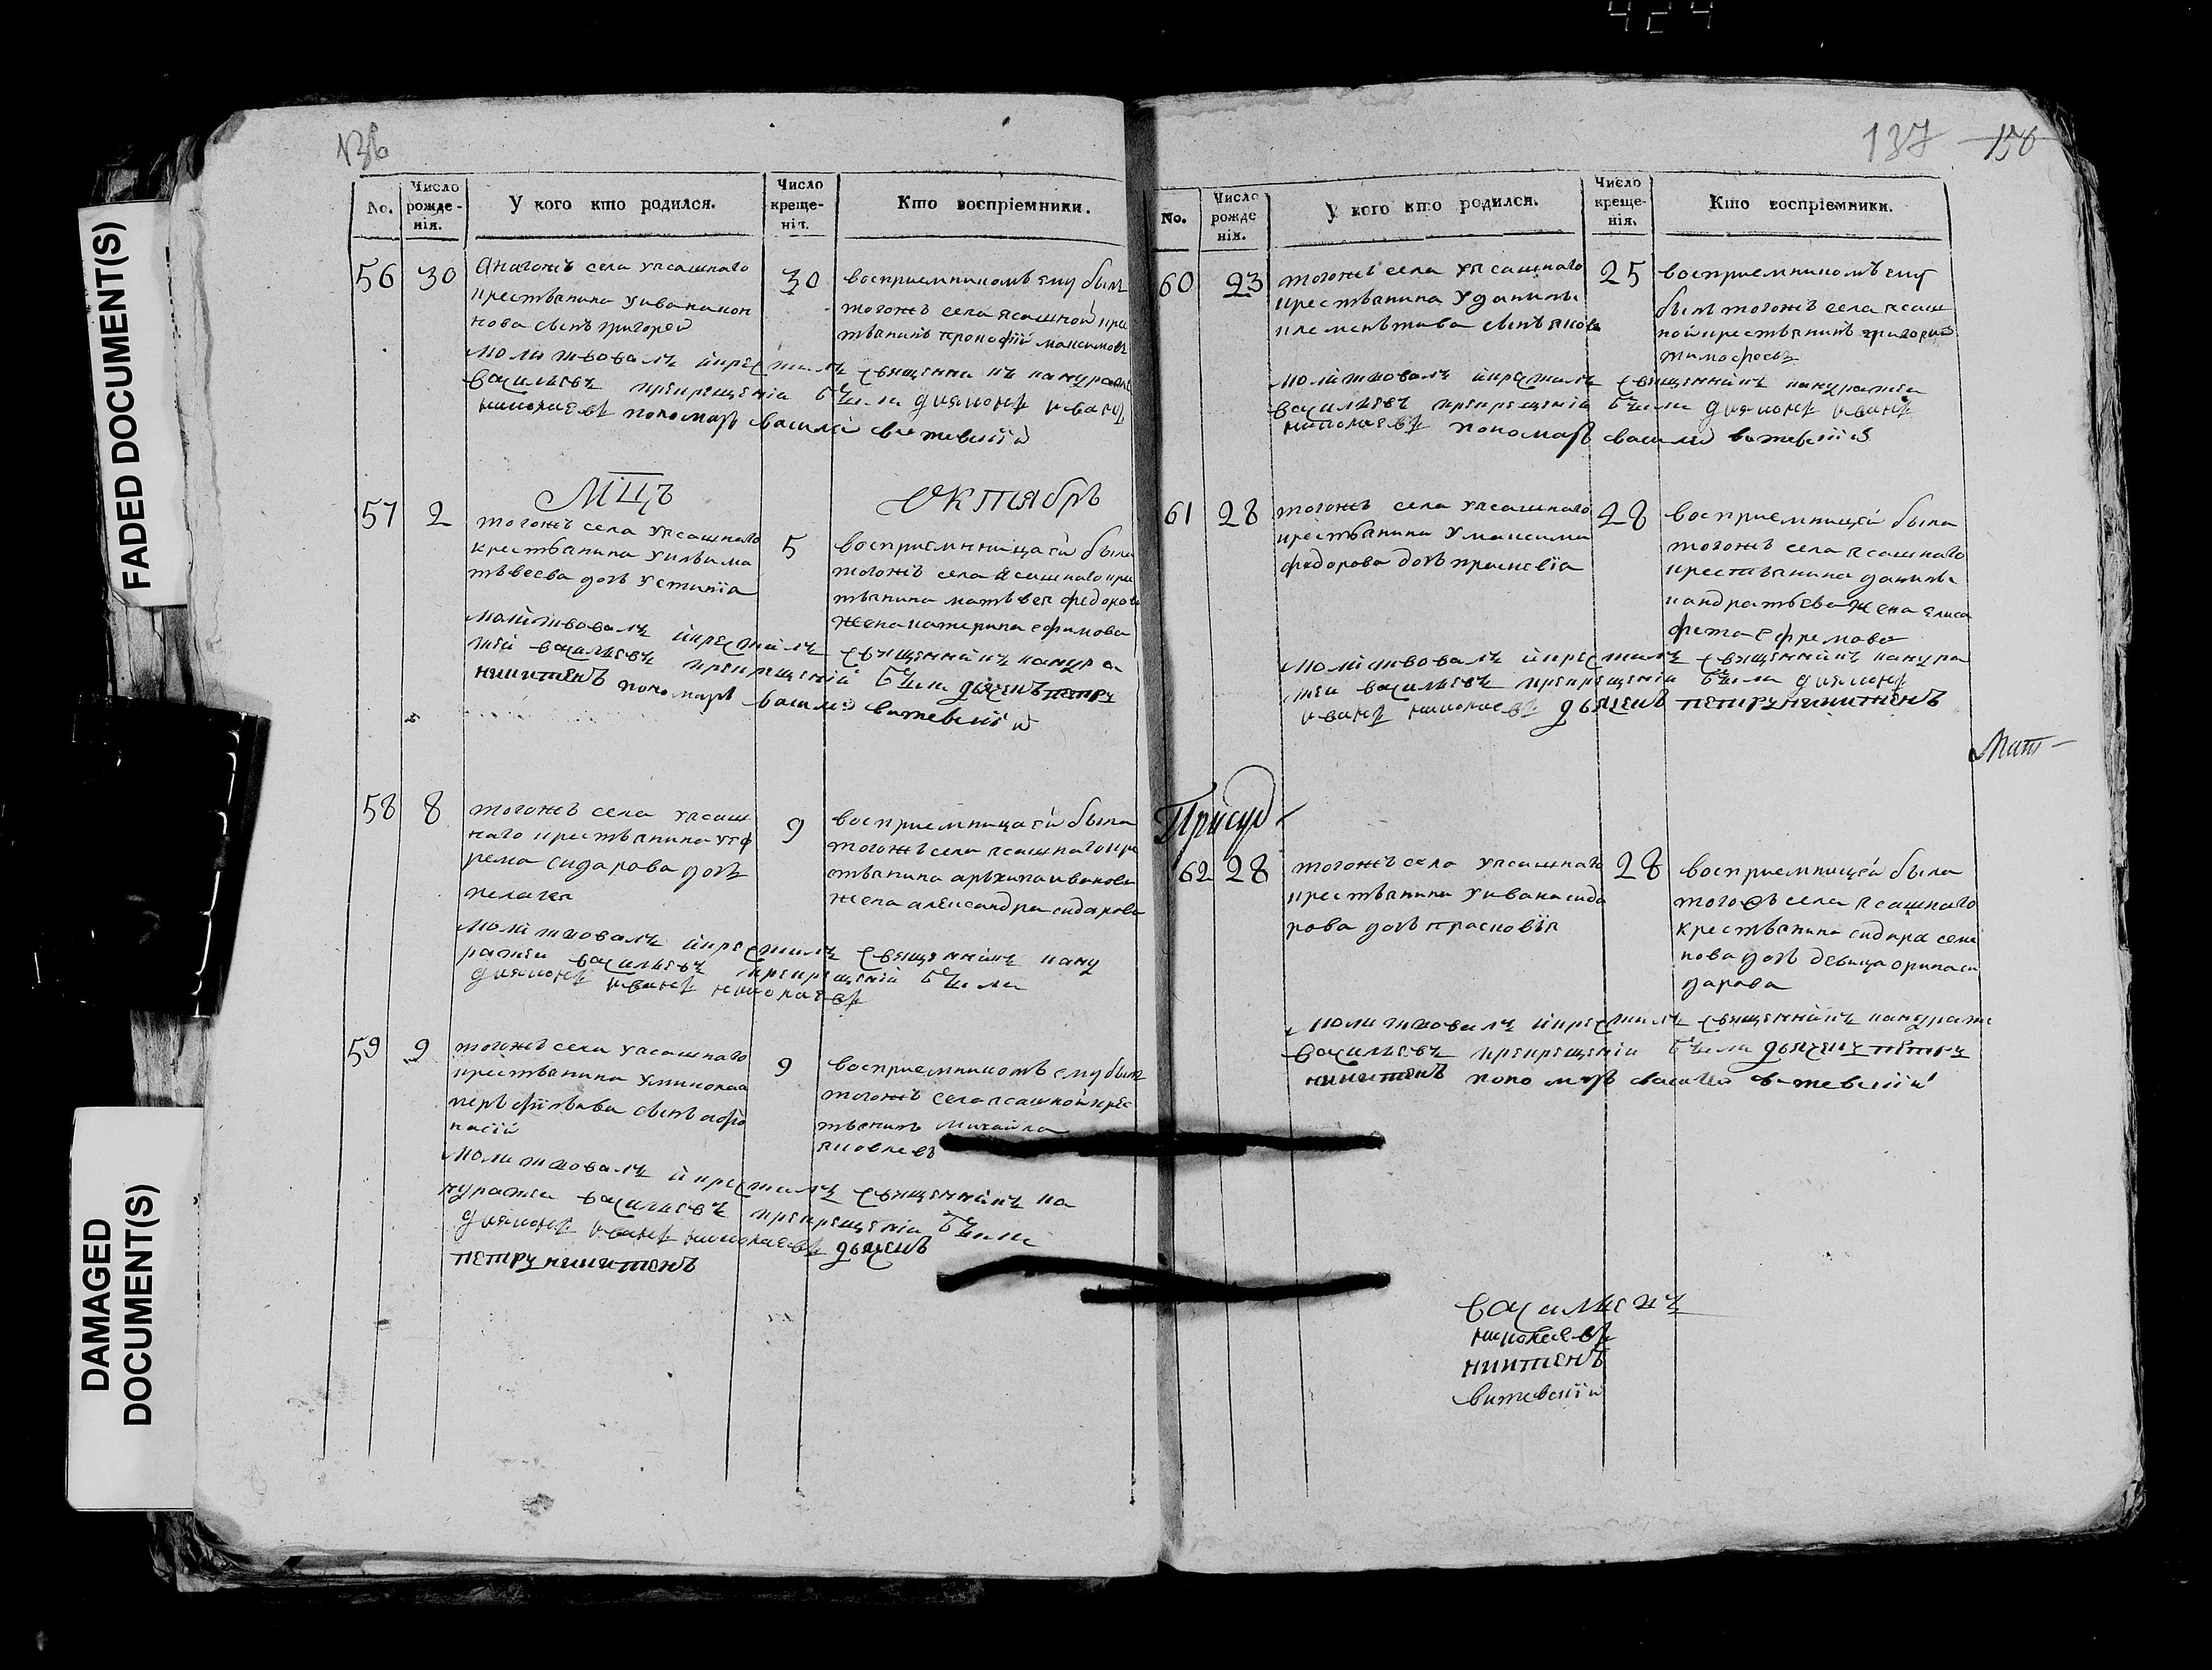 424
FADED DOCUMENT(S)
DAMAGED
DOCUMENT(S)
136
No.
Число рожде-нія.
У кого кто родился.
Число креще-нія.
Кто воспріемники.
56 30
села уясашнаго
крестьянина уивана кон
нова сынъ григорей
30
восприемникомъ ему былъ
тогожъ села ясашной кре
стьянинъ прокофiй максимовъ
молитвовалъ икрестилъ священникъ
васильевъ прикрещенiи были диаконъ иванъ
николаевъ пономарь василей витевскiй
МЦЪ Октябрь
57 2
тогожъ села уясашнаго
крестьянина
дочь устинiа
5
восприемницаей была
тогожъ села ясашнаго кре
стьянина матвея федорова
жена катерина ефимова
молитвовалъ икрестилъ священникъ кандра
тей васильевъ прикрещенiи были дьячекъ петръ
никитенъ пономарь василей витевскiй
58 8
тогожъ села уясаш
наго крестьянина уеф
рема сидарова дочь
пелагея
9
восприемницаей была
тогожъ села ясашнаго кре
стьянина архипа иванова
жена александра сидарова
молитвовалъ икрестилъ священникъ канд
ратей васильевъ прикрещенiи были
диаконъ иванъ николаевъ
59 9
тогожъ села уясашнаго
крестьянина униколая
сынъ афо
насiй
9
восприемникомъ ему былъ
тогожъ села ясашной крес
тьянинъ михайла
яковлевъ
молитвовалъ икрестилъ священникъ ка
ндратей васильевъ прикрещенiи были
диаконъ иванъ николаевъ дьячекъ
петръ никитенъ
137 156
No.
Число рожде нія.
У кого кто родился.
Число креще-нія.
Кто воспріемники.
60 23
тогожъ села уясашнаго
крестьянина уданилы
сынъ яковъ
25
восприемникомъ ему
былъ тогожъ села ясаш
ной крестьянинъ григорей
тимофеевъ
молитвовалъ икрестилъ священникъ кандратей
васильевъ прикрещенiи были диаконъ иванъ
николаевъ пономарь василей витевскiй
61 28
тогожъ села уясашнаго
крестьянина умаксима
федорова дочь прасковiа
28
восприемницей была
тогожъ села ясашнаго
крестьянина данилы
кандратьева жена елиса
фета ефремова
молитвовалъ икрестилъ священникъ кандра
тей васильевъ прикрещенiи были диаконъ
иванъ николаевъ дьячекъ петръ никитенъ
Присуд
62 28
тогожъ села уясашнаго
крестьянина уивана сида
рова дочь прасковiя
28
восприемницей была
тогожъ села ясашнаго
крестьянина сидара семи
нова дочь девица орина си
дарова
молитвовалъ икрестилъ священникъ кандрате
васильевъ прикрещенiи были дьячекъ петръ
никитенъ пономарь василей витевскiй
васильевъ
николаевъ
никитенъ
витевскiй